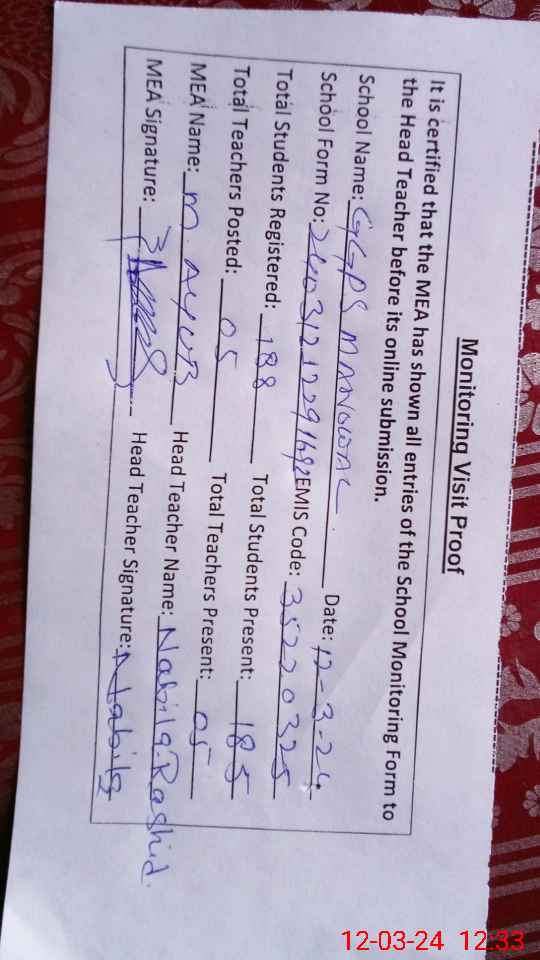 Monitoring Visit Proof
It is certified that the MEA has shown all entries of the School Monitoring Form to
the Head Teacher before its online submission.
School Name: GGPS MANOWAL. Date: 12-3-24
School Form No: EMIS Code: 35220325
Total Students Registered: 188 Total Students Present: 185
Total Teachers Posted: 05 Total Teachers Present: 05
MEA Name: M. AYUB Head Teacher Name: Nabila Rashid.
MEA Signature: Head Teacher Signature: Nabila
12-03-24 12:33